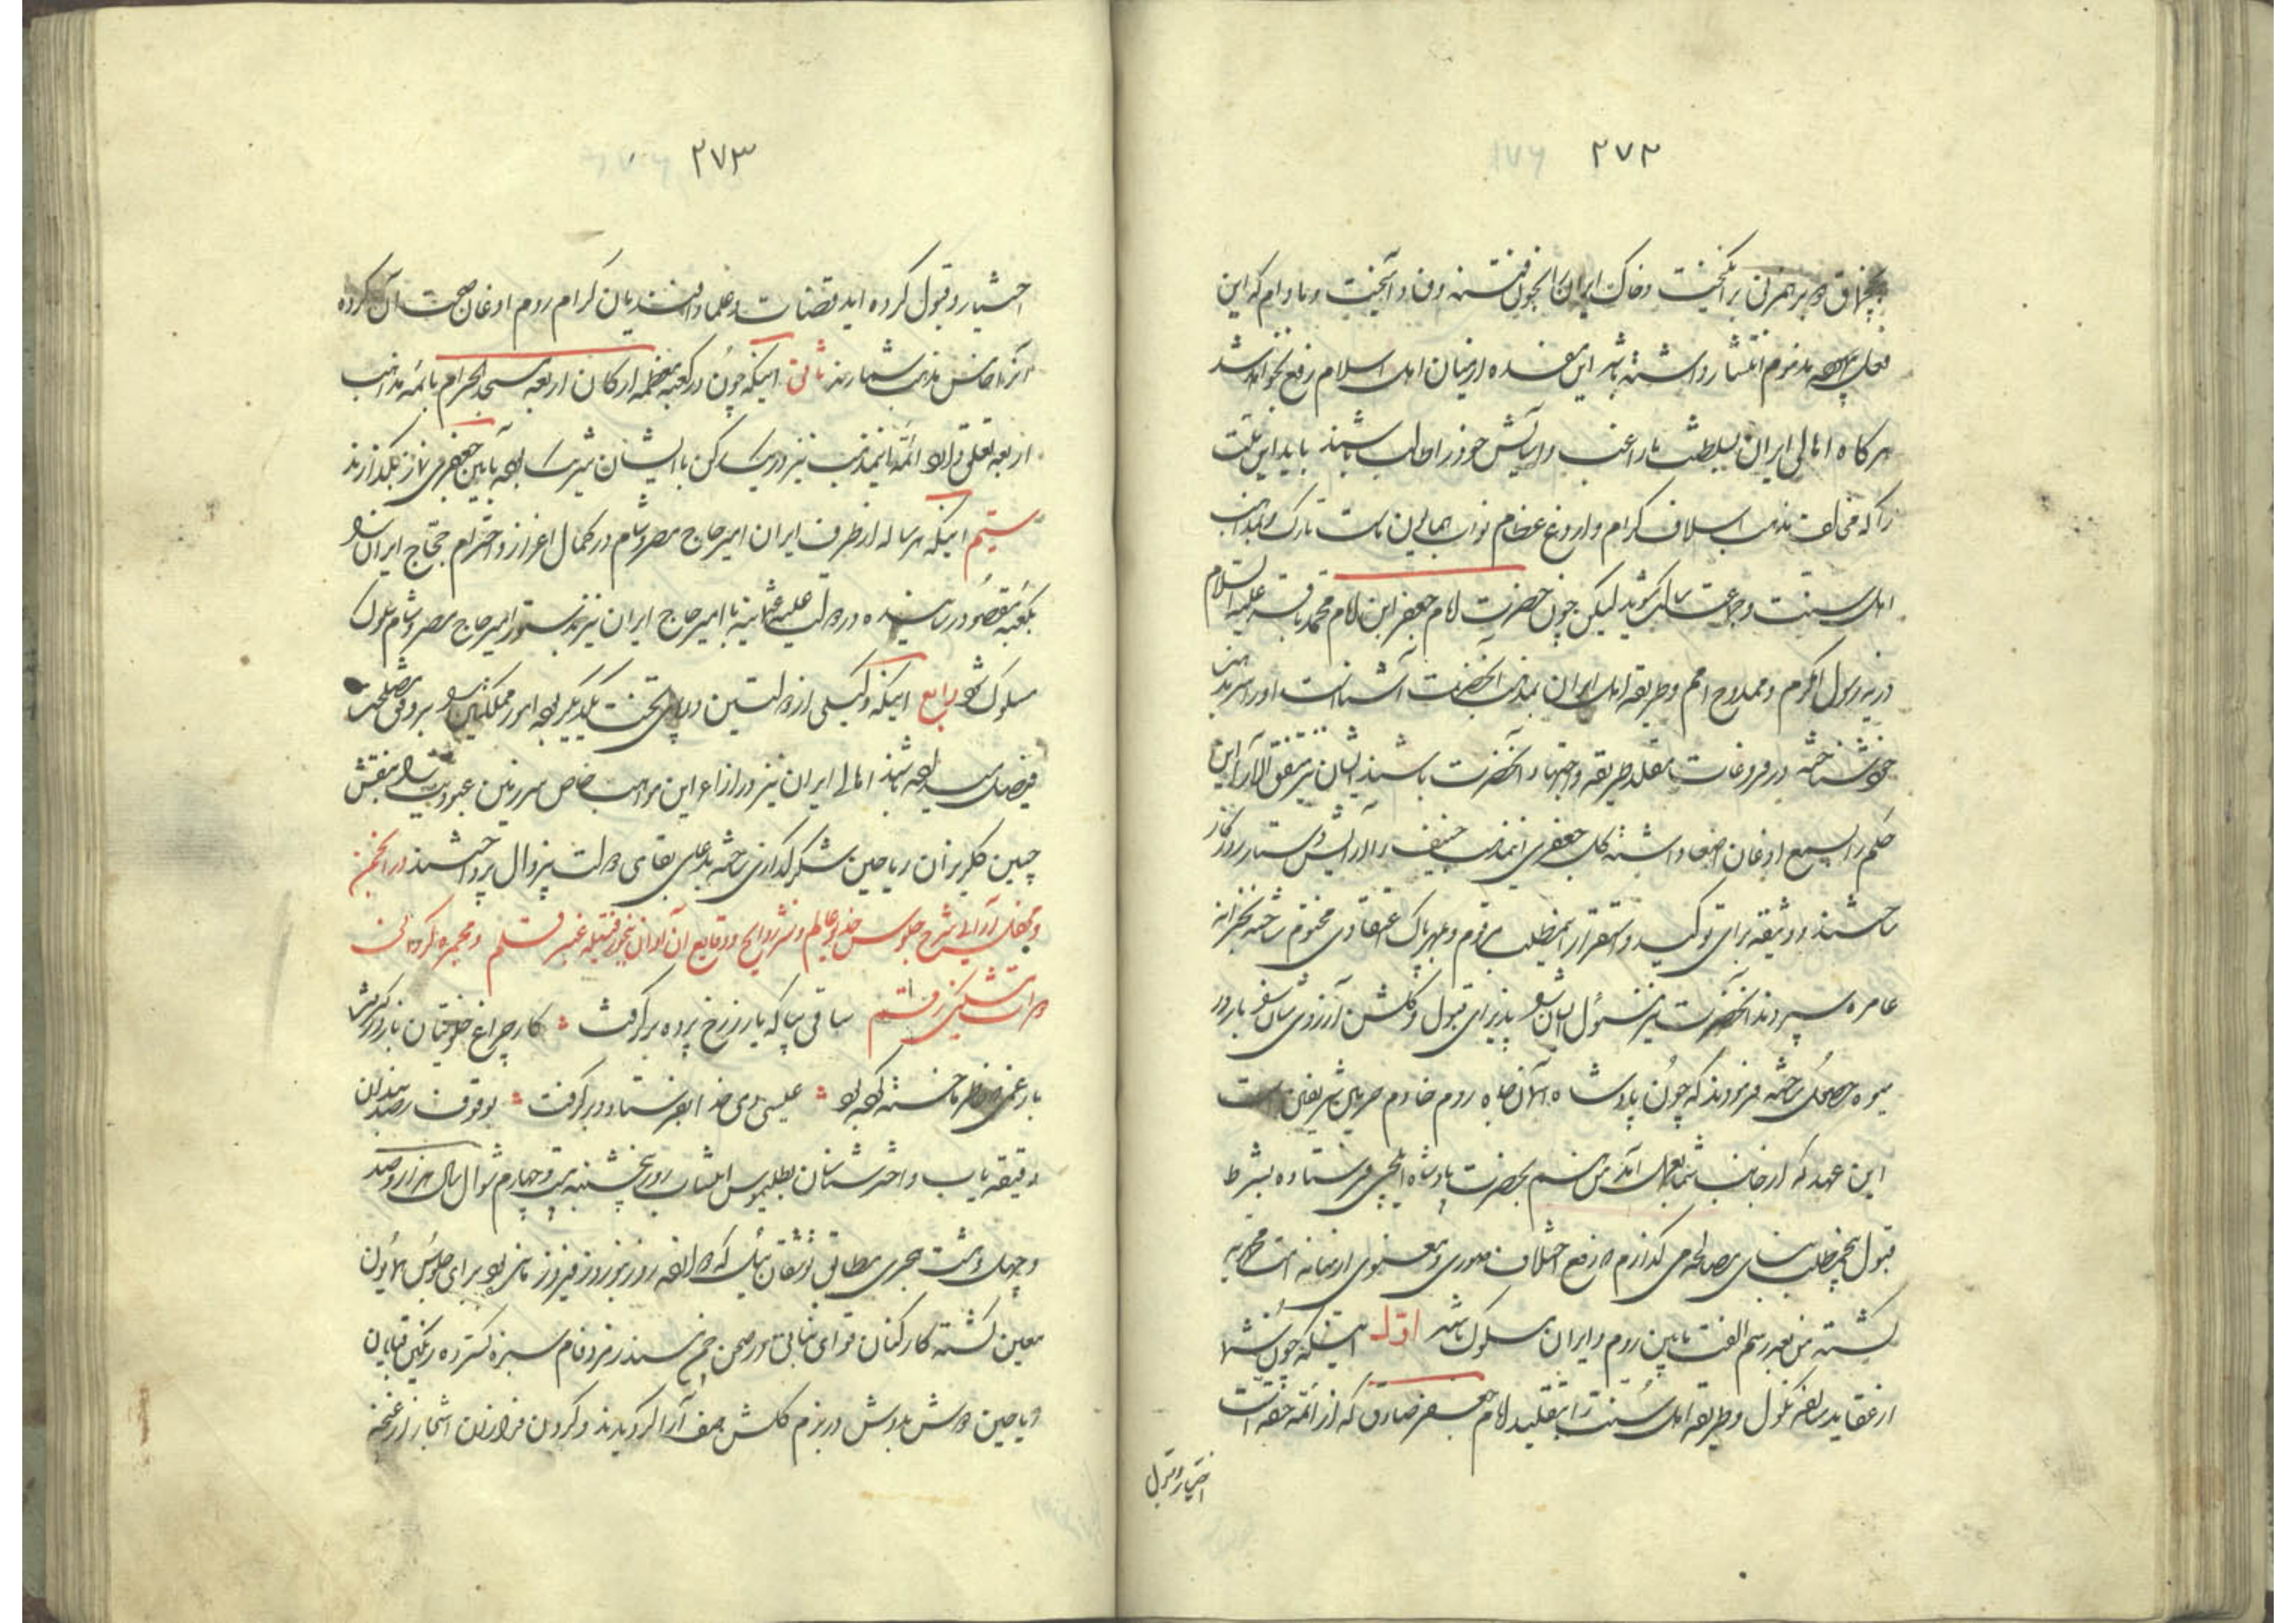 ۲۷۲
بچپقماق و بر همزنی برانگیخت و خاک ایران را بخون فتنه و فساد آمیخت و مادام که این
فعل مذموم انتشار داشته باشد این مفسده از میان اهل اسلام رفع نخواهد شد
هر گاه اهالی ایران بسلطنت ما راغب و آسایش خود را طالب باشند باید این ملت
را که مخالف مذهب اسلاف کرام و اروغ عظام نواب همایون ماست تارک و بمذهب
اهل سنت و جماعت سالک شوند لیکن چون حضرت امام جعفر ابن امام محمد باقر علیه السلام
ذریه رسول اکرم و ممدوح امم و طریقه اهل ایران بمذهب آنحضرت آشناست او را سر مذهب
خود شناخته در فروعات مقلد طریقه و اجتهاد آنحضرت باشند ایشان نیز متفق الآرا این
حکم را بسمع اذعان اصغا داشته گل جعفری این مذهب حنیف را آرایش دستار روزگار
ساختند و وثیقه برای توکید و استقرار اینمطلب مرقوم و بمهر پاک اعتقادی مختوم ساخته بخزانه
عامره سپردند آنحضرت نیز مسئول ایشان را پذیرای قبول و گلشن آرزوی شان را بارور
میوه حصول ساخته فرمودند که چون پادشاه آسمان جاه روم خادم حرمین شریفین است
این عهد که از جانب شما بعمل آمد من هم بحضرت پادشاه ایلچی فرستاده بشرط
قبول پنجمطلب بنای مصالحه می گذارم که رفع اختلاف صوری و معنوی از میانه امت محمدیه
گشته من بعد رسم الفت مابین روم و ایران مسلوک باشد اول اینکه چون شما
از عقاید سالفه نکول و طریقه اهل سنت را بتقلید امام جعفر صادق که از ائمه حقه است
اختیار و قبول
۲۷۳
اختیار و قبول کرده اید قضات و علما و افندیان کرام روم اذعان صحت آن کرده
آنرا خامس مذاهب شمارند ثانی اینکه چون در کعبه معظمه ارکان اربعه مسجد الحرام بائمه مذاهب
اربعه تعلق دارد ائمه اینمذهب نیز در یک رکن با ایشان شریک بوده بآیین جعفری نماز بگذارند
سیم اینکه هر ساله از طرف ایران امیر حاج مصر و شام در کمال اعزاز و احترام حجاج ایران را
بکعبه مقصود رسانیده در دولت علیه عثمانیه با امیر حاج ایران نیز بدستور امیر حاج مصر و شام سلوک
مسلوک شود رابع اینکه وکیلی از دولتین در پای تخت یکدیگر بوده امور مملکتین را بر وفق مصلحت
فیصل میداده باشند اهالی ایران نیز در ازاء این مواهب خاص سر زمین عبودیت را بنقش
جبین گلریزان ریاحین شکر گذاری ساخته بدعای بقای دولت بیزوال پرداختند در انجمن
و محفل آرائی شرح جلوس خدیو عالم و نشر روایح وقایع آن اوان بخور فتیله عنبر قلم و مجمره گردانی
دوات مشکین رقم ساقی بیا که یار ز رخ پرده برگرفت کار چراغ خلوتیان باز درگرفت
بار غمی که خاطر ما خسته کرده بود عیسی دمی خدا بفرستاد و برگرفت بوقوف رصدبندان
دقیقه یاب و اختر شناسان بطلیموس انتساب روز پنجشنبه بیست و چهارم شوال سال هزار و صد
و چهل و هشت هجری مطابق توشقان ئیل که دوازده روز بنوروز فیروز مانده بود برای جلوس همایون
معین گشته کارکنان قوای نباتی در صحن چمن سندس زمرد فام سبزه گسترده رنگین قبایان
ریاحین دوش بدوش در بزم گلشن صف آرا گردیدند و گردن فرازان اشجار از غنچه